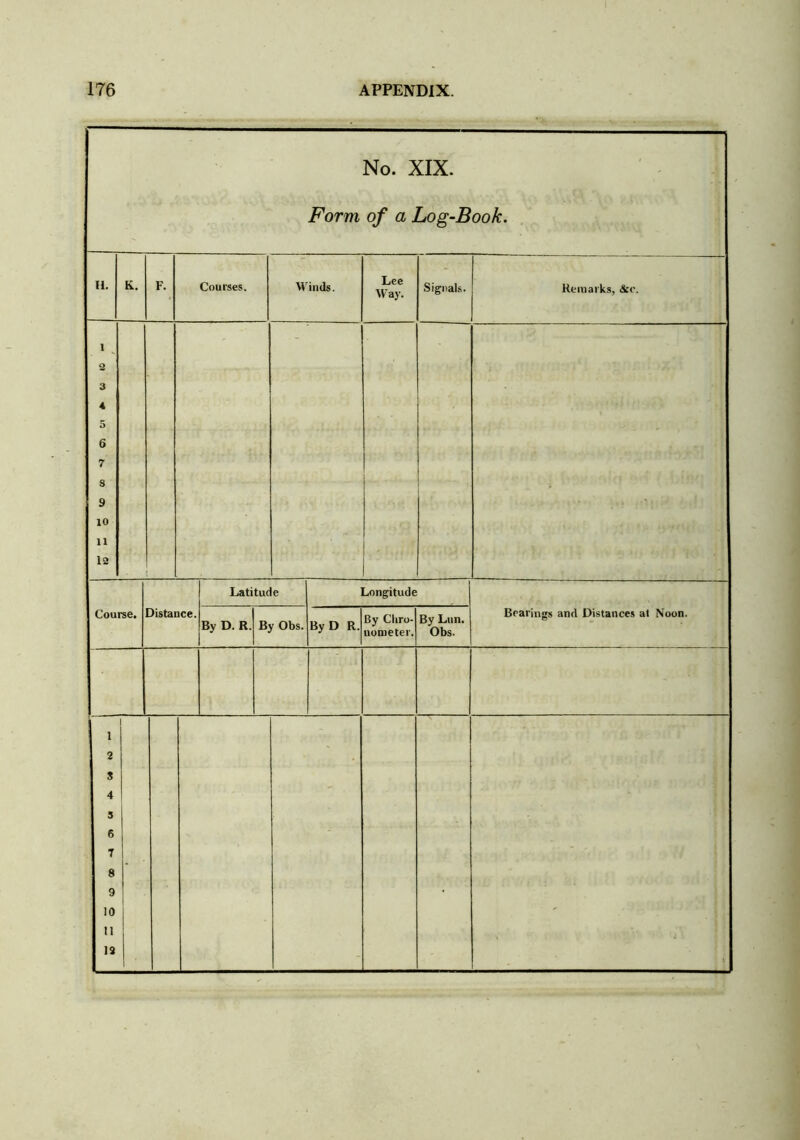 176 APPENDIX.
No. XIX.
Form of a Log-Book.
H. K. F. Courses. Winds. Lee Way. Signals. Remarks, &c.
1
2
3
4
5
6
7
8
9
10
11
12
Course. Distance. Latitude Longitude Bearings and Distances at Noon.
By D. R. By Obs. By D R. By Chro-nometer. By Lun. Obs.
1
2
3
4
5
6
7
8
9
10
11
12